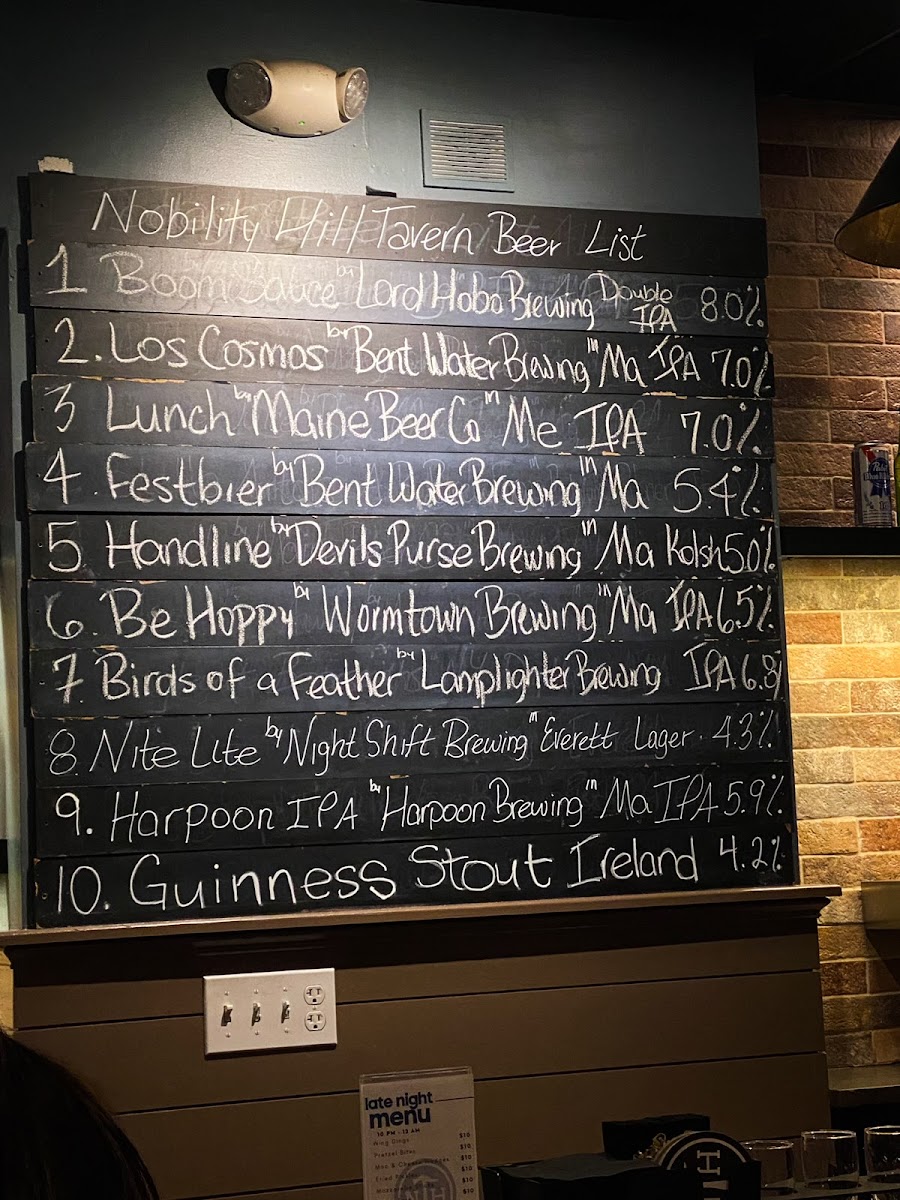 Nobility Hill Tavern Beer List
1 Boom Sauce by Lord Hobo Brewing Double IPA 8.0%
2. Los Cosmos by Bent Water Brewing in Ma IPA 7.0%
3 Lunch by Maine Beer Co in Me IPA 7.0%
4. Festbier by Bent Water Brewing in Ma 5.4%
5. Handline by Devils Purse Brewing in Ma Kolsh 5.0%
6. Be Hoppy by Wormtown Brewing in Ma IPA 6.5%
7. Birds of a Feather by Lamplighter Brewing IPA 6.8%
8. Nite Lite by Night Shift Brewing in Everett Lager 4.3%
9. Harpoon IPA by Harpoon Brewing in Ma IPA 5.9%
10. Guinness Stout Ireland 4.2%
late night
menu
10 PM - 12 AM
Wing Dings $10
Pretzel Bites $10
Mac & Cheese $10
Fried $10
$10
NH